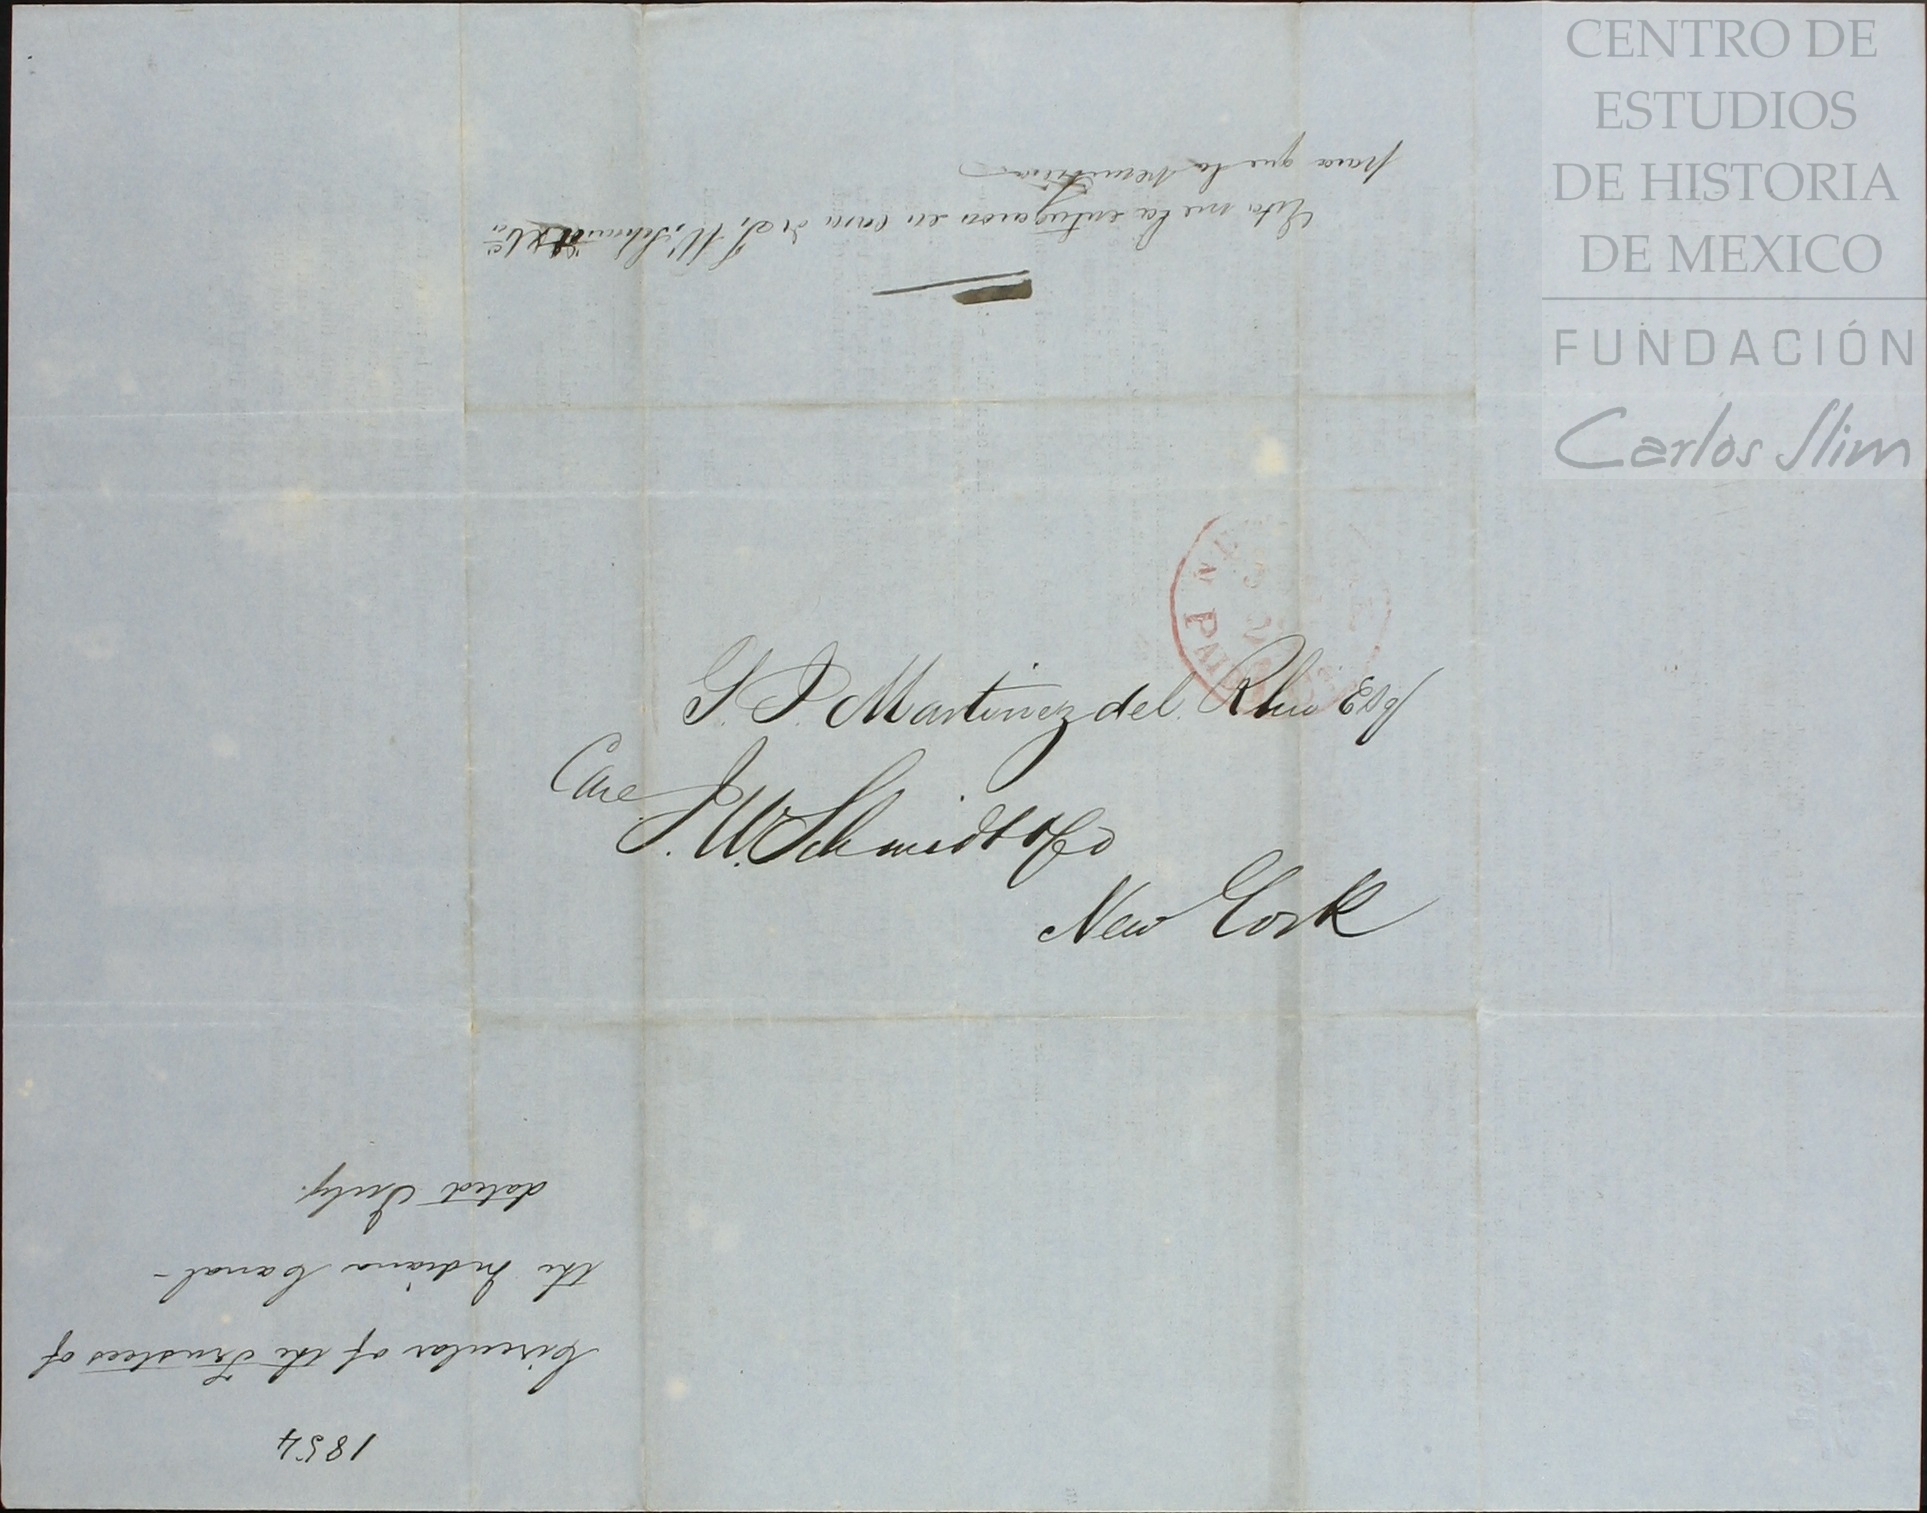 CENTRO DE
ESTUDIOS
DE HISTORIA
DE MEXICO
FUNDACIÓN
Carlos Slim
Esta me la entregaron en casa de J. W. Schmidt & Ca
para que la remitiera
PAID
G. P. Martinez del Rhio Esq
Care J. W. Schmidt & Co
New York
1854
Circular of the Trustees of
the Indiana Canal -
dated July.